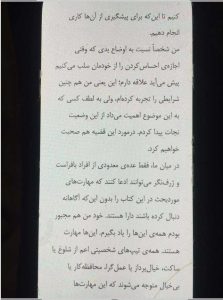 کنیم تا این‌که برای پیشگیری از آن‌ها کاری
انجام دهیم.
من شخصاً نسبت به اوضاع بدی که وقتی
اجازه‌ی احساس‌کردن را از خودمان سلب می‌کنیم
پیش می‌آید علاقه دارم؛ این یعنی من هم چنین
شرایطی را تجربه کرده‌ام، ولی به لطف کسی که
به این موضوع اهمیت می‌داد از این وضعیت
نجات پیدا کردم. درمورد این قضیه هم صحبت
خواهیم کرد.
در میان ما، فقط عده‌ی معدودی از افراد بافراست
و ژرف‌نگر می‌توانند ادعا کنند که مهارت‌های
موردبحث در این کتاب را بدون این‌که آگاهانه
دنبال کرده باشند دارا هستند. خود من هم مجبور
بودم همه‌ی این‌ها را یاد بگیرم. این‌ها مهارت
هستند. همه‌ی تیپ‌های شخصیتی اعم از شلوغ یا
ساکت، خیال‌پرداز یا عمل‌گرا، محافظه‌کار یا
بی‌خیال متوجه می‌شوند که این مهارت‌ها